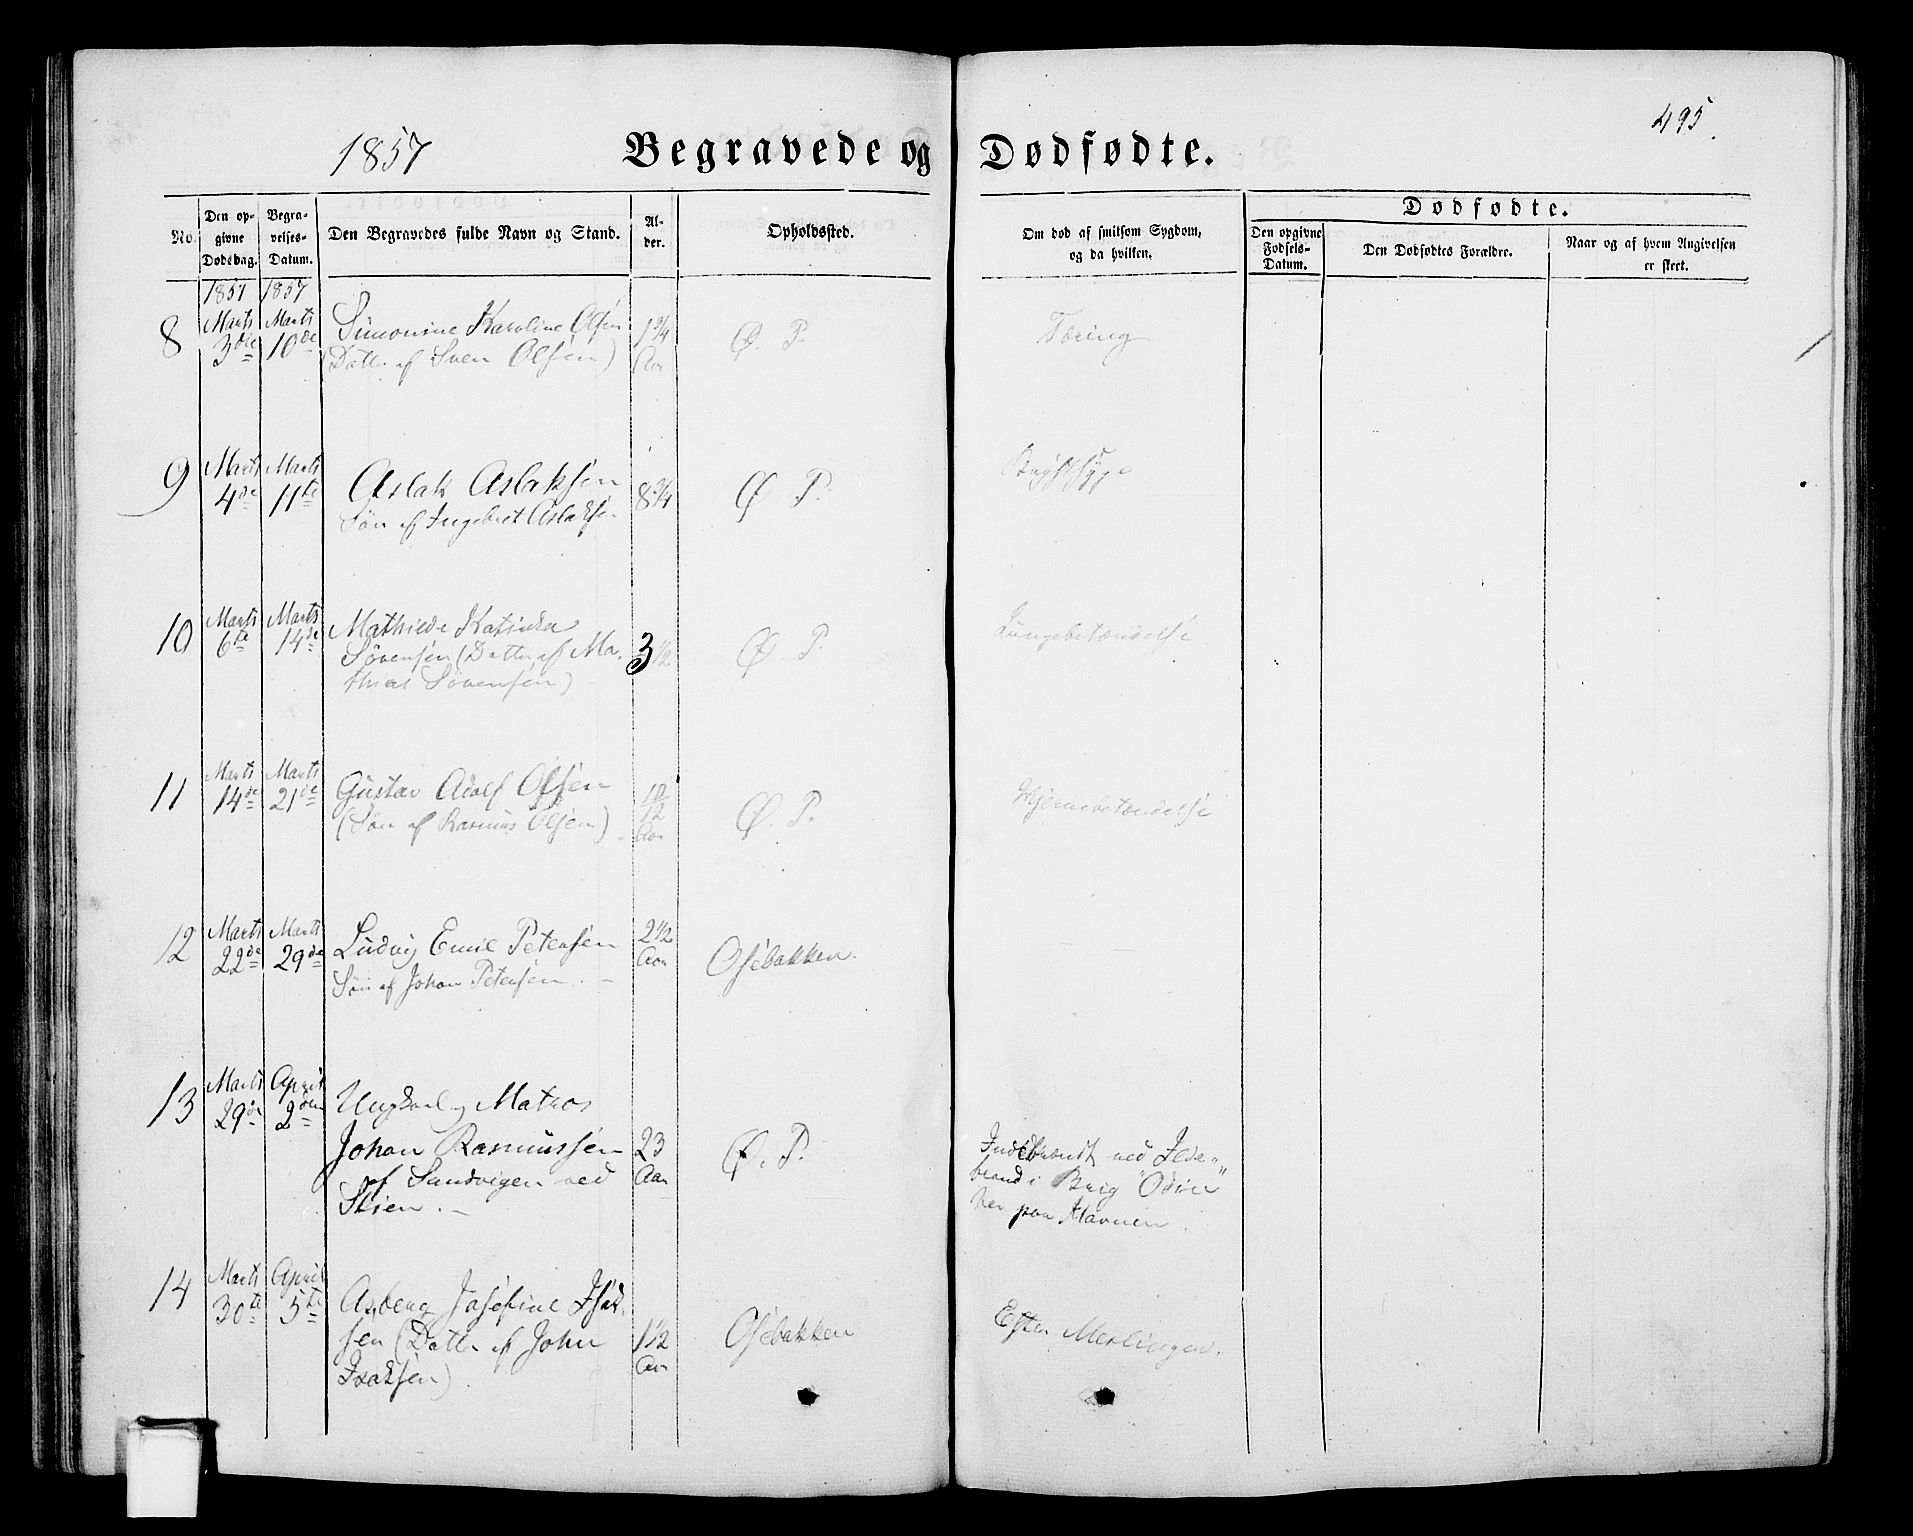 495.
1857 Begravede og Dødfødte.
No. Den opgivne Dødsdag. Begravelses-Datum. Den Begravedes fulde Navn og Stand. Alder. Opholdssted. Om død af smitsom Sygdom, og da hvilken. Dødfødte. Den opgivne Fødsels-Datum. Den Dødfødtes Forældre. Naar og af hvem Angivelsen er skeet.
1857 1857
8 Marts 3die Marts 10de Simonine Karoline Olsen 1 3/4 Aar Ø. P. Tæring
(Datter af Sven Olsen)
9 Marts 4de Marts 11te Aslak Aslaksen 8 3/4 Ø P. Brystsyge
Søn af Ingebret Aslaksen
10 Marts 6te Marts 14de Mathilde Katinka 3 1/2 Ø. P. Lungebetændelse
Sørensen (Datter af Ma-
thias Sørensen)
11 Marts 14de Marts 21de Gustav Adolf Olsen 10/12 Aar Ø. P. Hjernebetændelse
(Søn af Rasmus Olsen)
12 Marts 22de Marts 29de Ludvig Emil Petersen 2 1/2 Aar Osebakken.
Søn af Johan Petersen. –
13 Marts 29de April 2den Ungkarl og Matros
Johan Rasmussen 23 Aar Ø. P. Indebrændt ved Ilde-
af Sandvigen ved brand i Brig "Odin"
Skien. – her paa Havnen.
14 Marts 30te April 5te Asberg Josefine Isak- 1 1/2 Aar Osebakken Efter Meslinger.
sen (Datter af John
Isaksen)